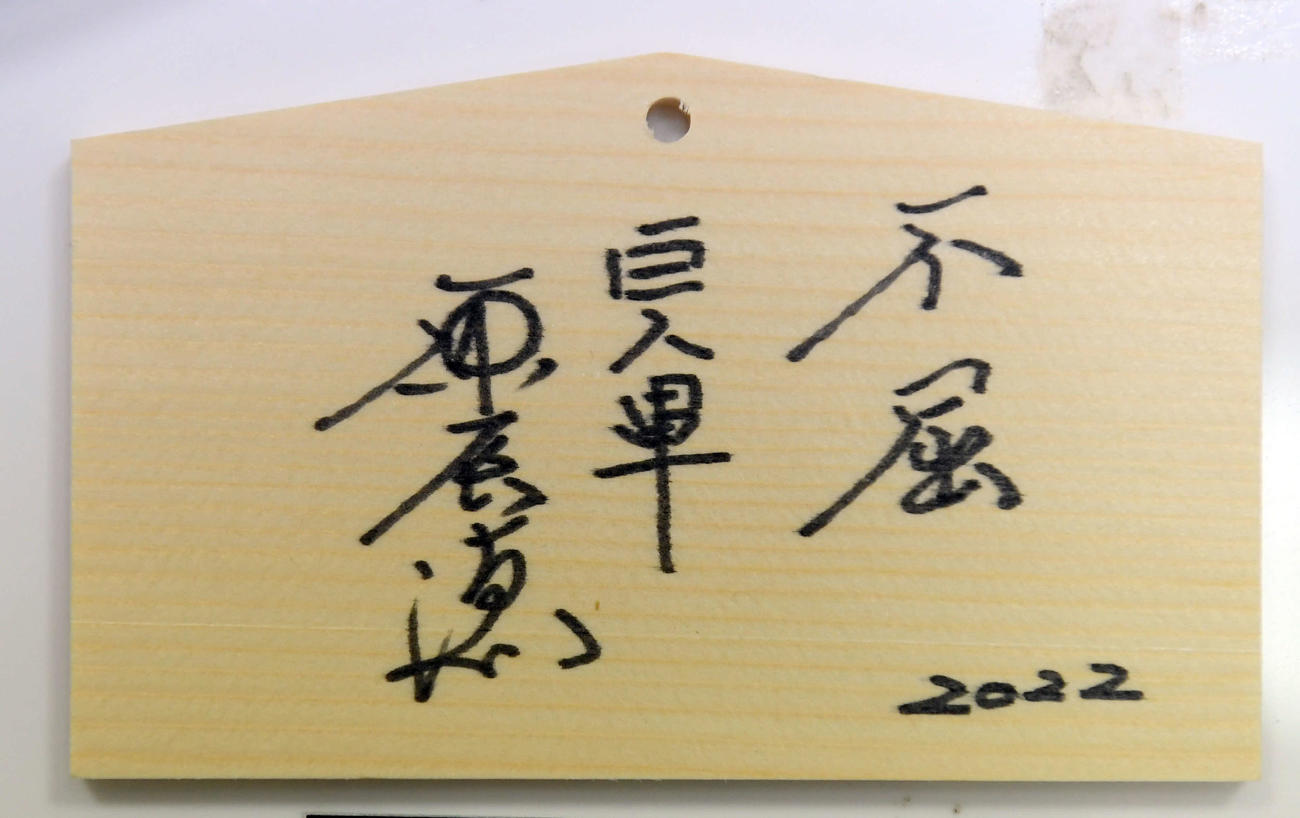 不屈
巨人軍
原辰徳
2022